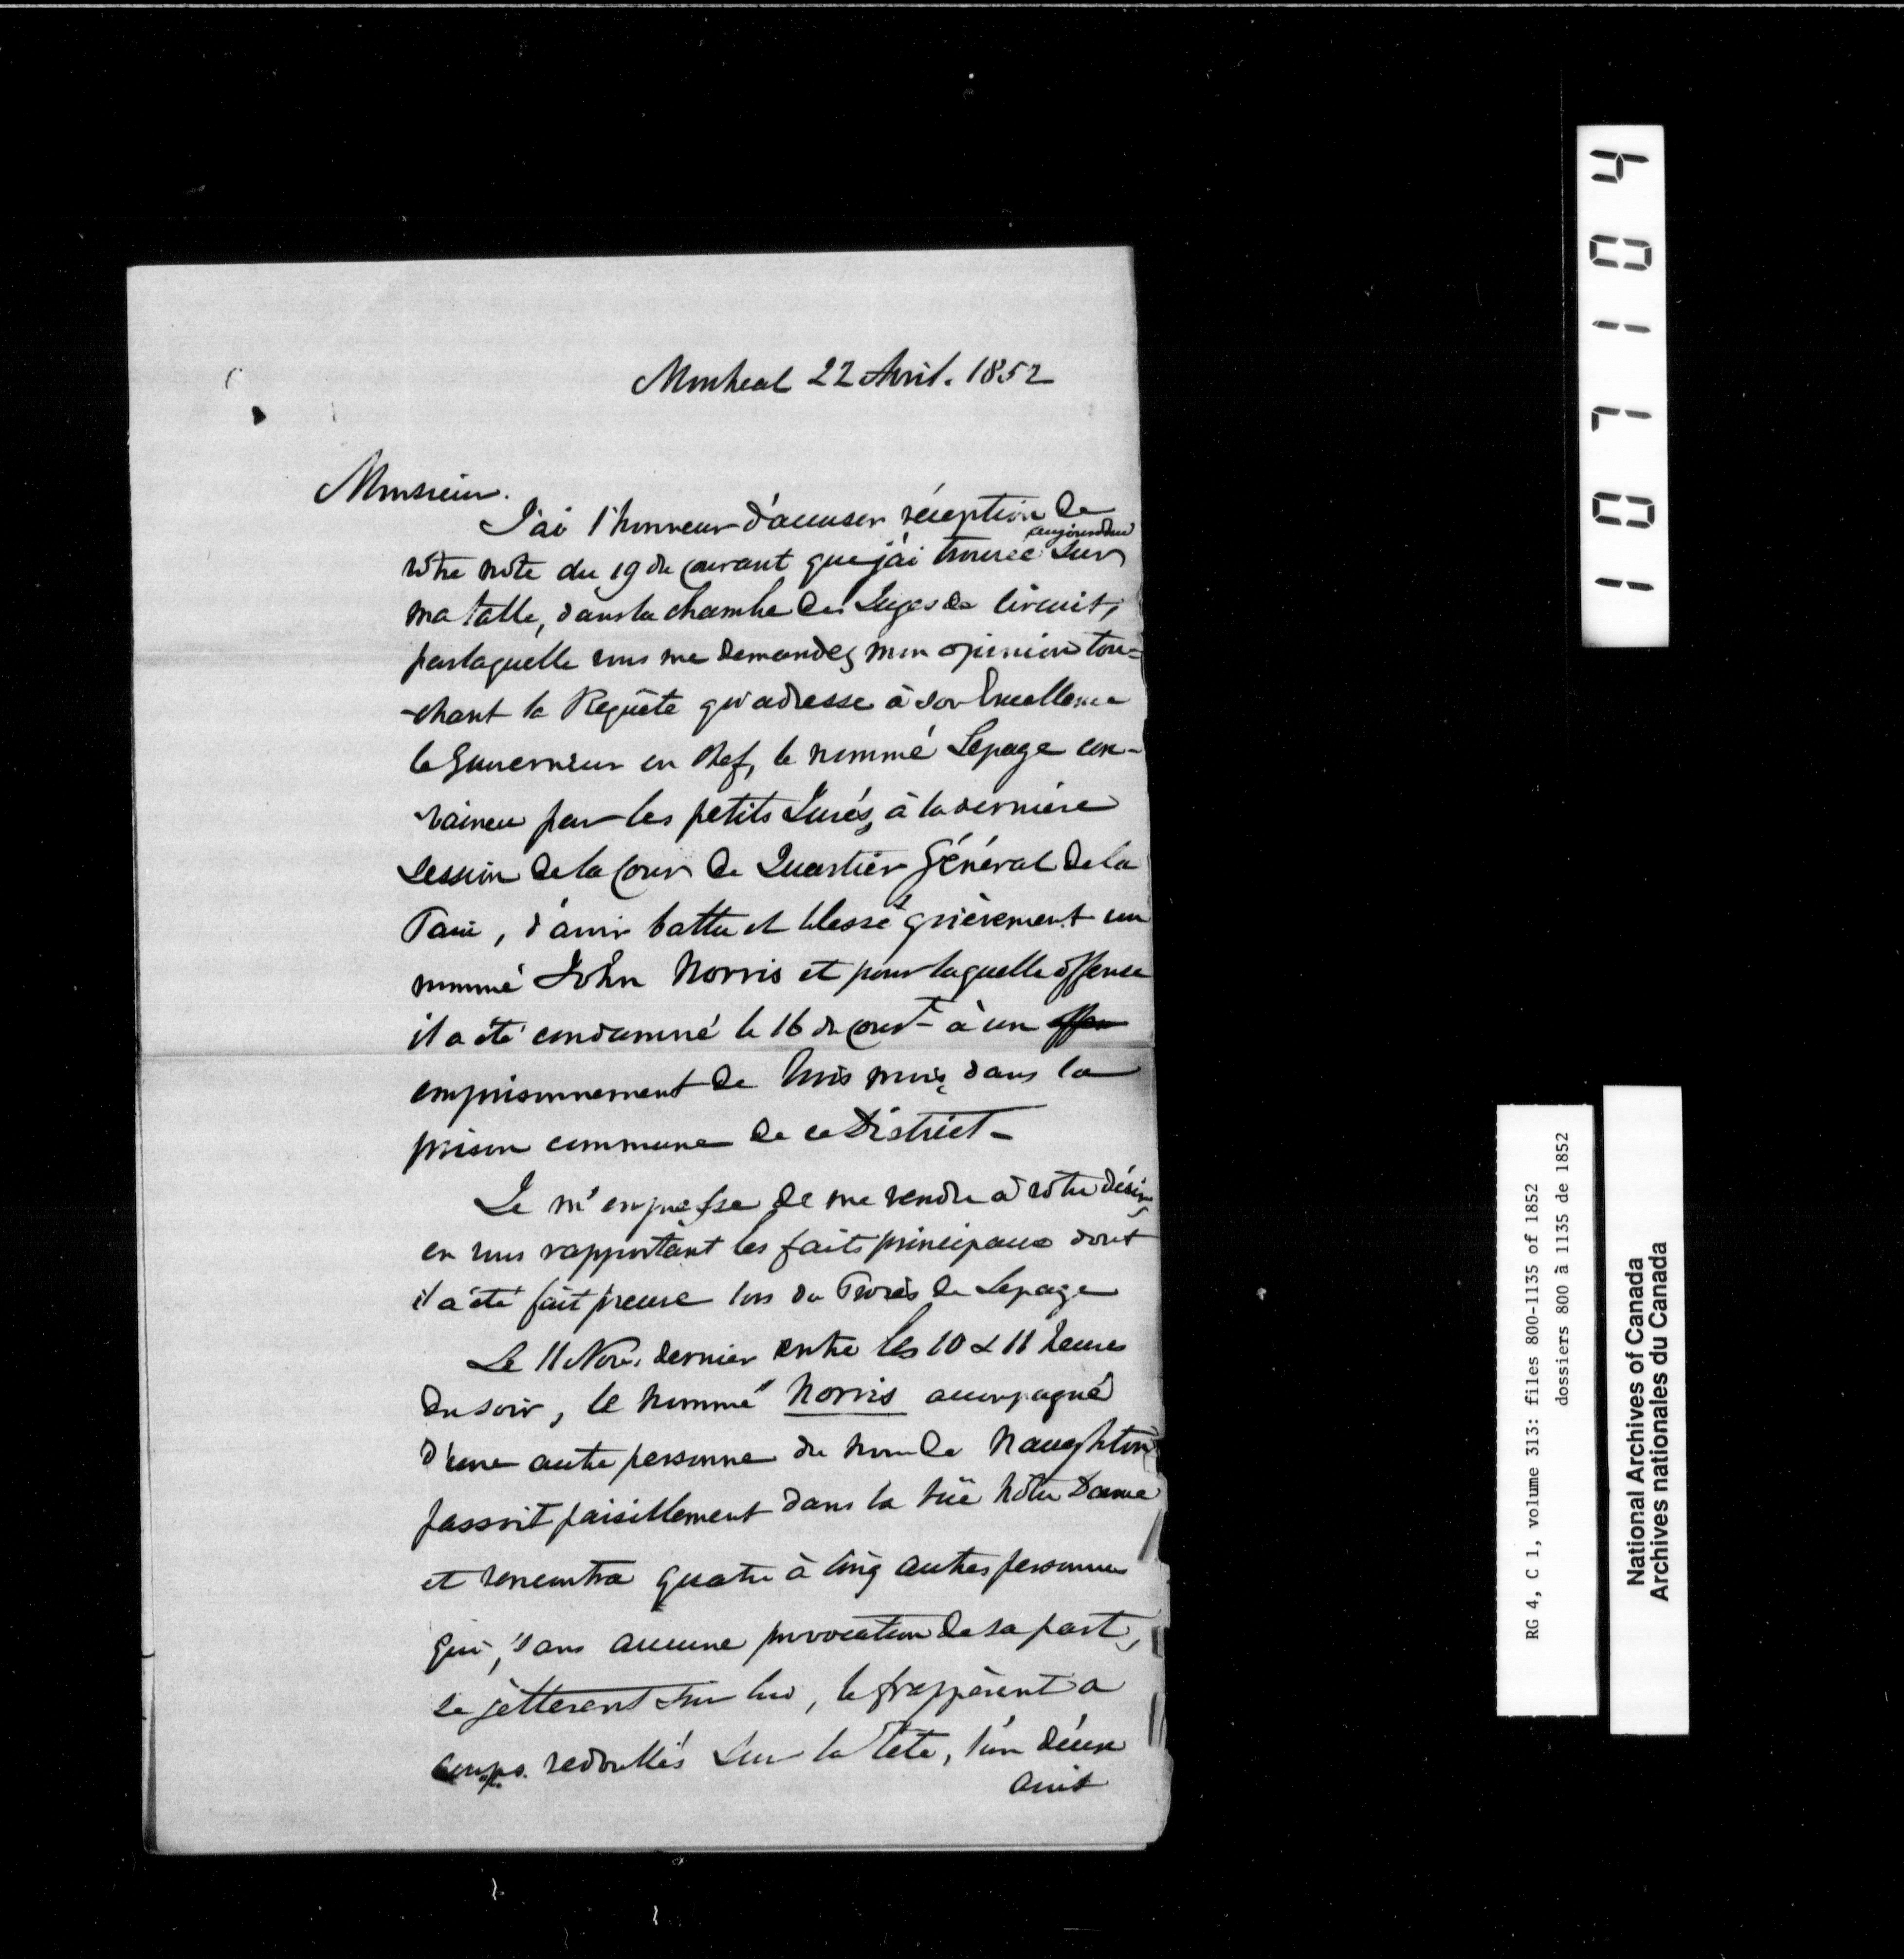 Montreal 22 Avril. 1852
Monsieur.
J'ai l'honneur d'accuser réception de
aujourdhui
vôtre note du 19 du Courant que j'ai trouvée sur
ma table, dans la chambre des Juges de Circuit,
par laquelle vous me demandez mon opinion tou=
-chant la Requête qu'adresse à Son Excellence
le Gouverneur en Chef, le nommé Lepage con-
vaincu par les petits Jurés, à la dernière
Session de la Cour de Quartier Général de la
Paix, d'avoir battu et blessé grièvement un
nommé John Norris et pour laquelle offense
il a été condamné le 16 du court à un offen
emprisonnement de trois mois, dans la
prison commune de ce District -
Je m'empresse de me rendre à vôtre désir
en vous rapportant les faits principaux dont
il a été fait preuve lors du Procès de Lepage
Le 11 Nov. dernier entre les 10 & 11 heures
du soir, le nommé Norris accompagné
d'une autre personne du nom de Naughton
passoit paisiblement dans la rüe Nôtre Dame
et rencontra quatre à cinq autres personnes
qui, sans aucune provocation de sa part,
se jetterent sur lui, le frappèrent a
coups redoublés sur la tête, l'un d'eux
avoit
1071104
RG 4, C 1, volume 313: files 800-1135 of 1852
dossiers 800 à 1135 de 1852
National Archives of Canada
Archives nationales du Canada